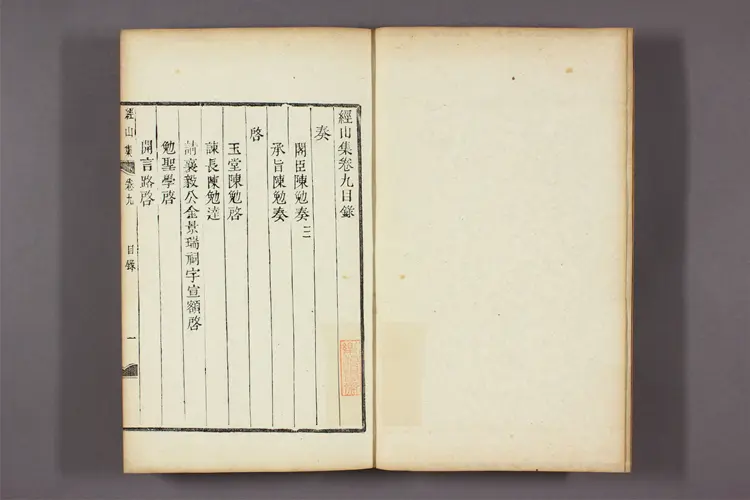 經山集卷九目錄
奏
閣臣陳勉奏 二
承旨陳勉奏
啓
玉堂陳勉啓
諫長陳勉達
請襄毅公金景瑞祠宇宣額啓
勉聖學啓
開言路啓
經山集 卷九 目錄 一